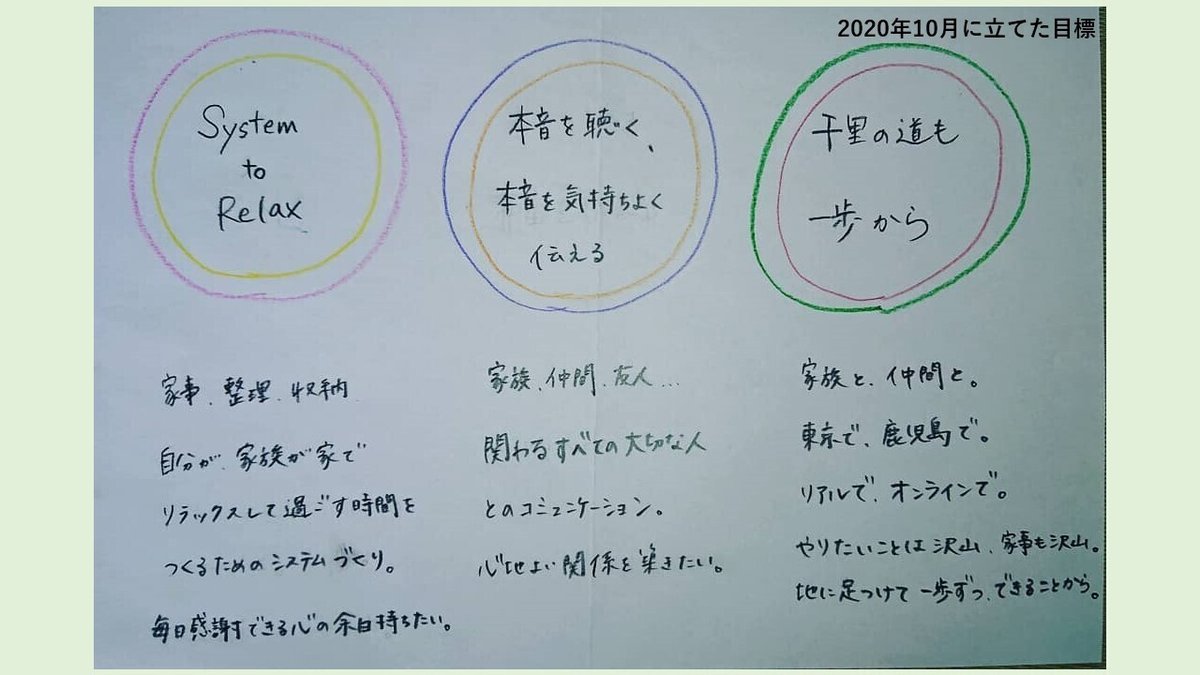 2020年10月に立てた目標
System
to
Relax
家事、整理、収納
自分が、家族が家で
リラックスして過ごす時間を
つくるためのシステムづくり。
毎日感謝できる心の余白持ちたい。
本音を聴く、
本音を気持ちよく
伝える
家族、仲間、友人...
関わるすべての大切な人
とのコミュニケーション。
心地よい関係を築きたい。
千里の道も
一歩から
家族と、仲間と。
東京で、鹿児島で。
リアルで、オンラインで。
やりたいことは沢山、家事も沢山。
地に足つけて一歩ずつ、できることから。